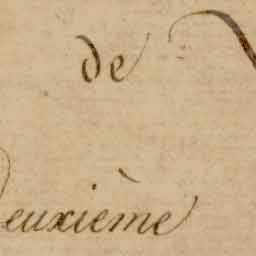 de
Deuxième